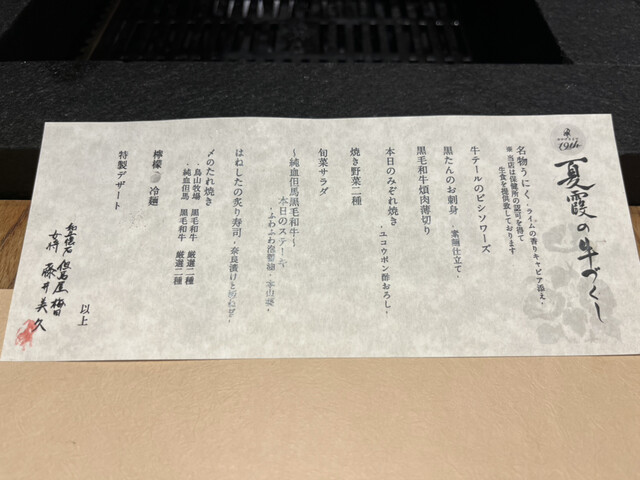 19th
夏霞の牛づくし
名物うにく・ライムの香りキャビア添え・
※ 当店は保健所の認可を得て
生食を提供致しております
牛テールのビシソワーズ
黒たんのお刺身 ・素麺仕立て・
黒毛和牛頬肉薄切り
本日のみぞれ焼き ・ユコウポン酢おろし・
焼き野菜二種
旬菜サラダ
〜純血但馬黒毛和牛〜
本日のステーキ
・ふわふわ泡醤油・本山葵・
はねしたの炙り寿司 ・奈良漬けと
〆のたれ焼き
・鳥山牧場 黒毛和牛 厳選二種
・純血但馬 黒毛和牛 厳選二種
檸檬 冷麺
特製デザート
以上
但馬屋 梅田
女将 藤井美久